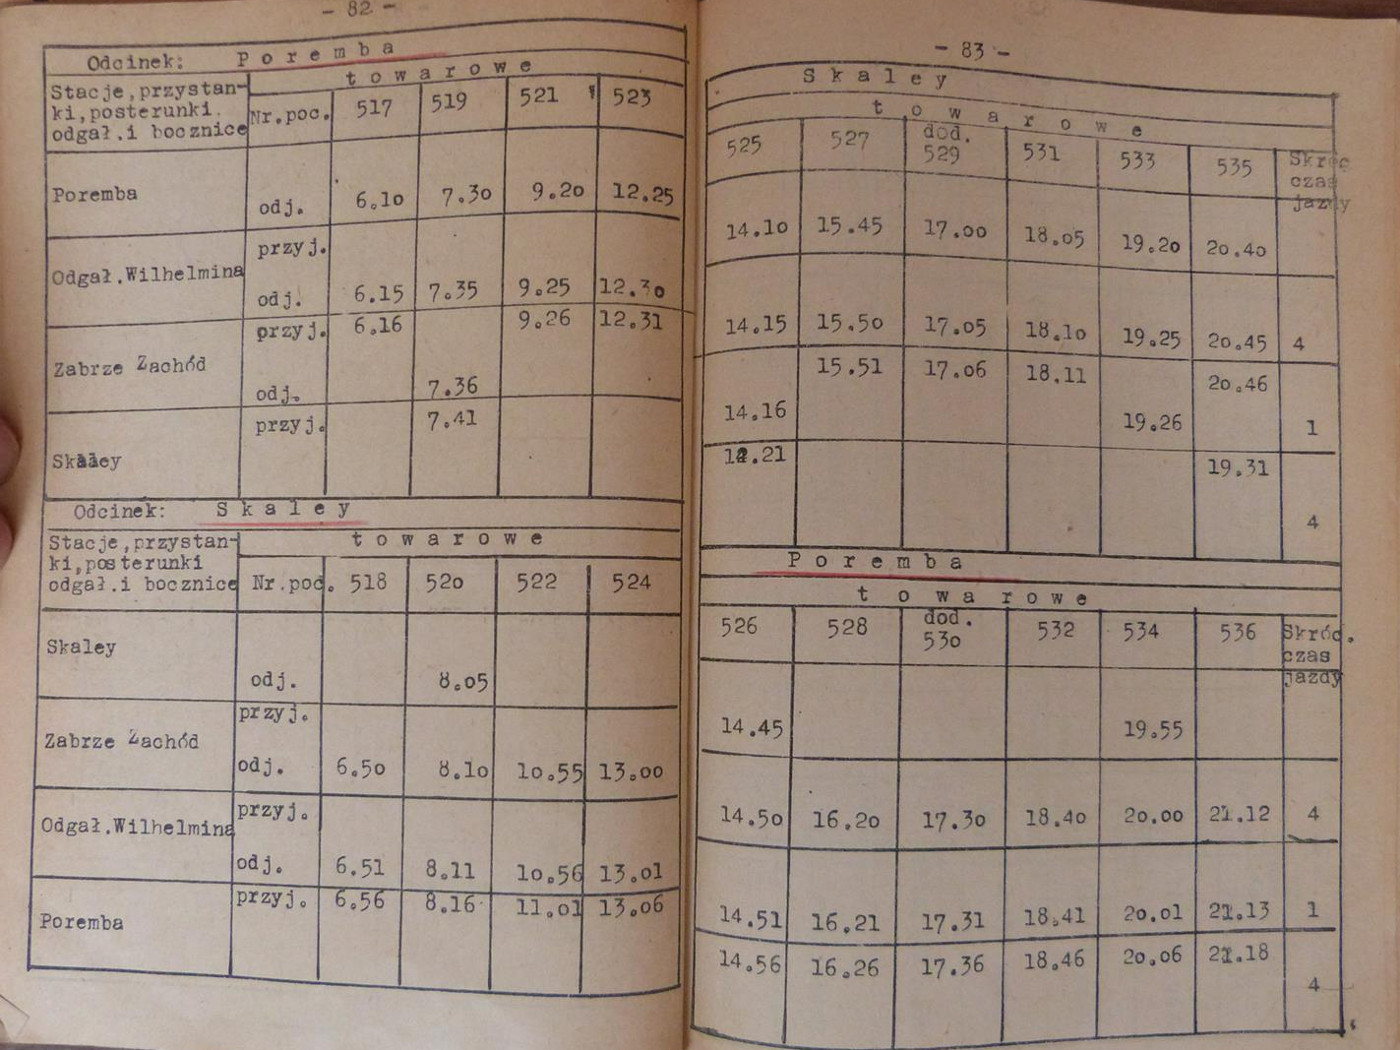 - 82 -
Odcinek: Poremba
Stacje,przystan-
ki,posterunki.
odgał.i bocznice
towarowe
Nr.poc. 517 519 521 523
Poremba odj. 6.10 7.30 9.20 12.25
Odgał.Wilhelmina przyj.
odj. 6.15 7.35 9.25 12.30
Zabrze Zachód przyj. 6.16 9.26 12.31
odj. 7.36
Skaley przyj. 7.41
Odcinek: Skaley
Stacje,przystan-
ki,posterunki
odgał.i bocznice
towarowe
Nr.poc. 518 520 522 524
Skaley
odj. 8.05
Zabrze Zachód przyj.
odj. 6.50 8.10 10.55 13.00
Odgał.Wilhelmina przyj.
odj. 6.51 8.11 10.56 13.01
Poremba przyj. 6.56 8.16 11.01 13.06
- 83 -
Skaley
towarowe
525 527 dod. 529 531 533 535 Skróc czas jazdy
14.10 15.45 17.00 18.05 19.20 20.40
14.15 15.50 17.05 18.10 19.25 20.45 4
15.51 17.06 18.11 20.46
14.16 19.26 1
14.21 19.31
4
Poremba
towarowe
526 528 dod. 530 532 534 536 Skróc. czas jazdy
14.45 19.55
14.50 16.20 17.30 18.40 20.00 21.12 4
14.51 16.21 17.31 18.41 20.01 21.13 1
14.56 16.26 17.36 18.46 20.06 21.18
4